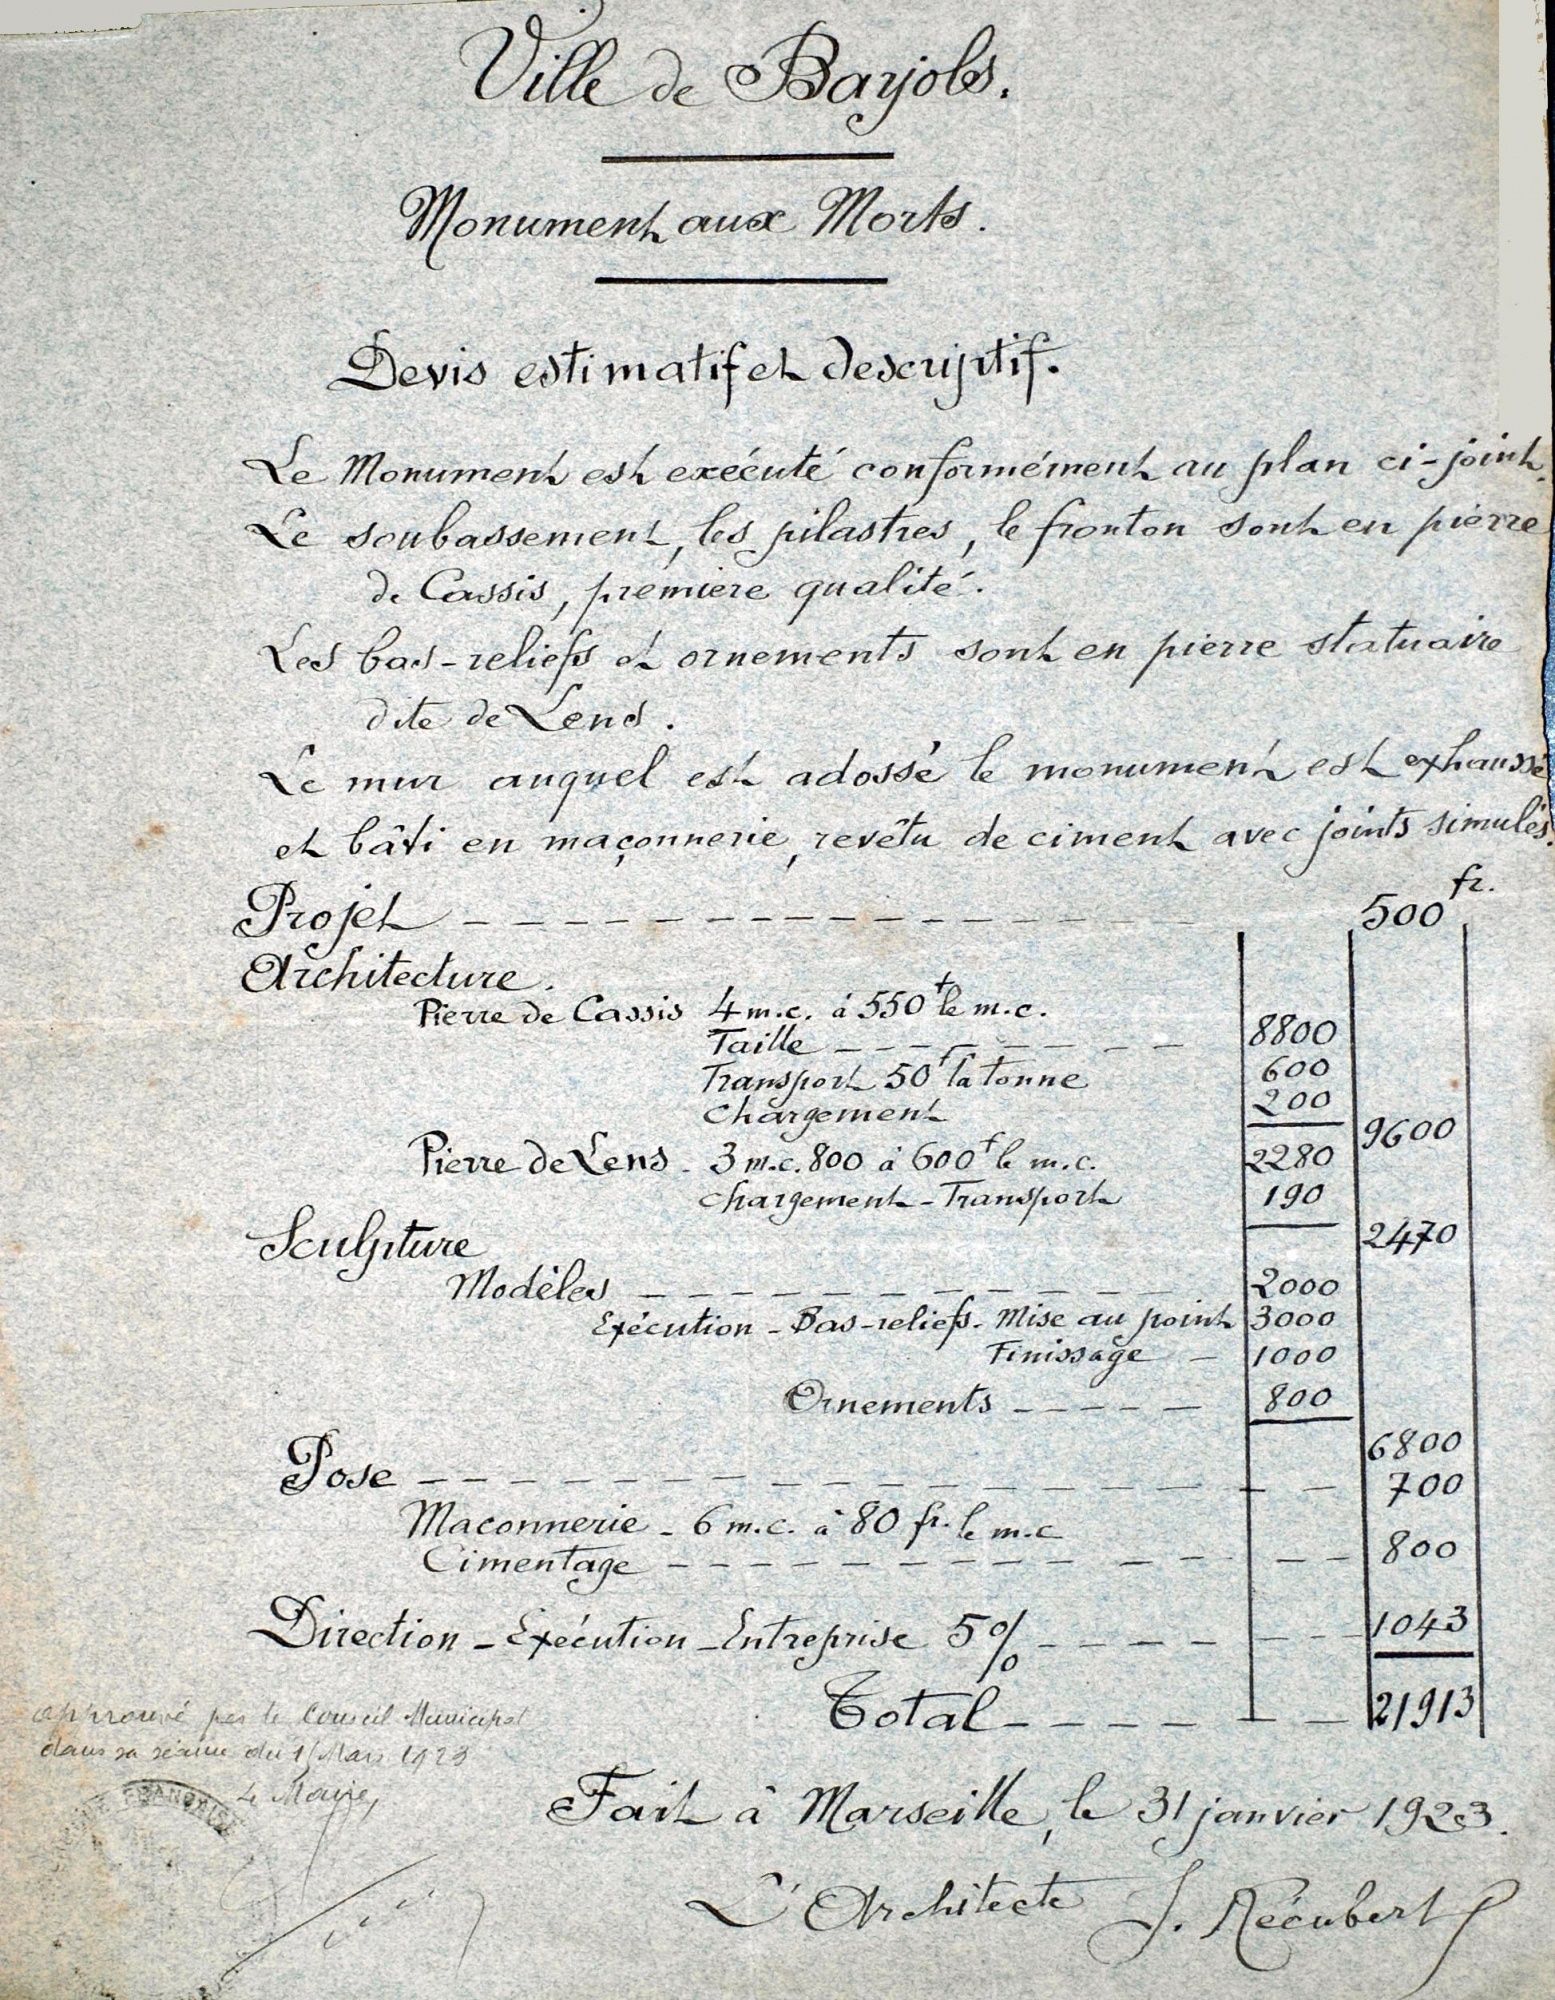 Ville de Barjols.
Monument aux Morts.
Devis estimatif et descriptif.
Le Monument est exécuté conformément au plan ci-joint.
Le soubassement, les pilastres, le fronton sont en pierre
de Cassis, première qualité.
Les bas-reliefs et ornements sont en pierre statuaire
dite de Lens.
Le mur auquel est adossé le monument est exhaussé
et bâti en maçonnerie, revêtu de ciment avec joints simulés.
Projet — — — — — — — — — — — — — 500 fr.
Architecture.
Pierre de Cassis 4 m.c. à 550f le m.c.
Taille — — — — — — — — 8800
Transport 50f la tonne 600
Chargement 200
9600
Pierre de Lens - 3 m.c. 800 à 600f le m.c. 2280
Chargement - Transport 190
2470
Sculpture
Modèles — — — — — — — — — — — 2000
Exécution - Bas-reliefs - Mise au point 3000
Finissage — 1000
Ornements — — — — — 800
6800
Pose — — — — — — — — — — — — — — — 700
Maconnerie - 6 m.c. à 80 fr. le m.c
Cimentage — — — — — — — — — — — — 800
Direction - Exécution - Entreprise 5% — — — — — — — 1043
Total — — — — — — 21913
approuvé par le Conseil Municipal
dans sa séance du 1 Mars 1923
Le Maire,
FRANÇAISE
Fait à Marseille, le 31 janvier 1923.
L'Architecte J. Récubert